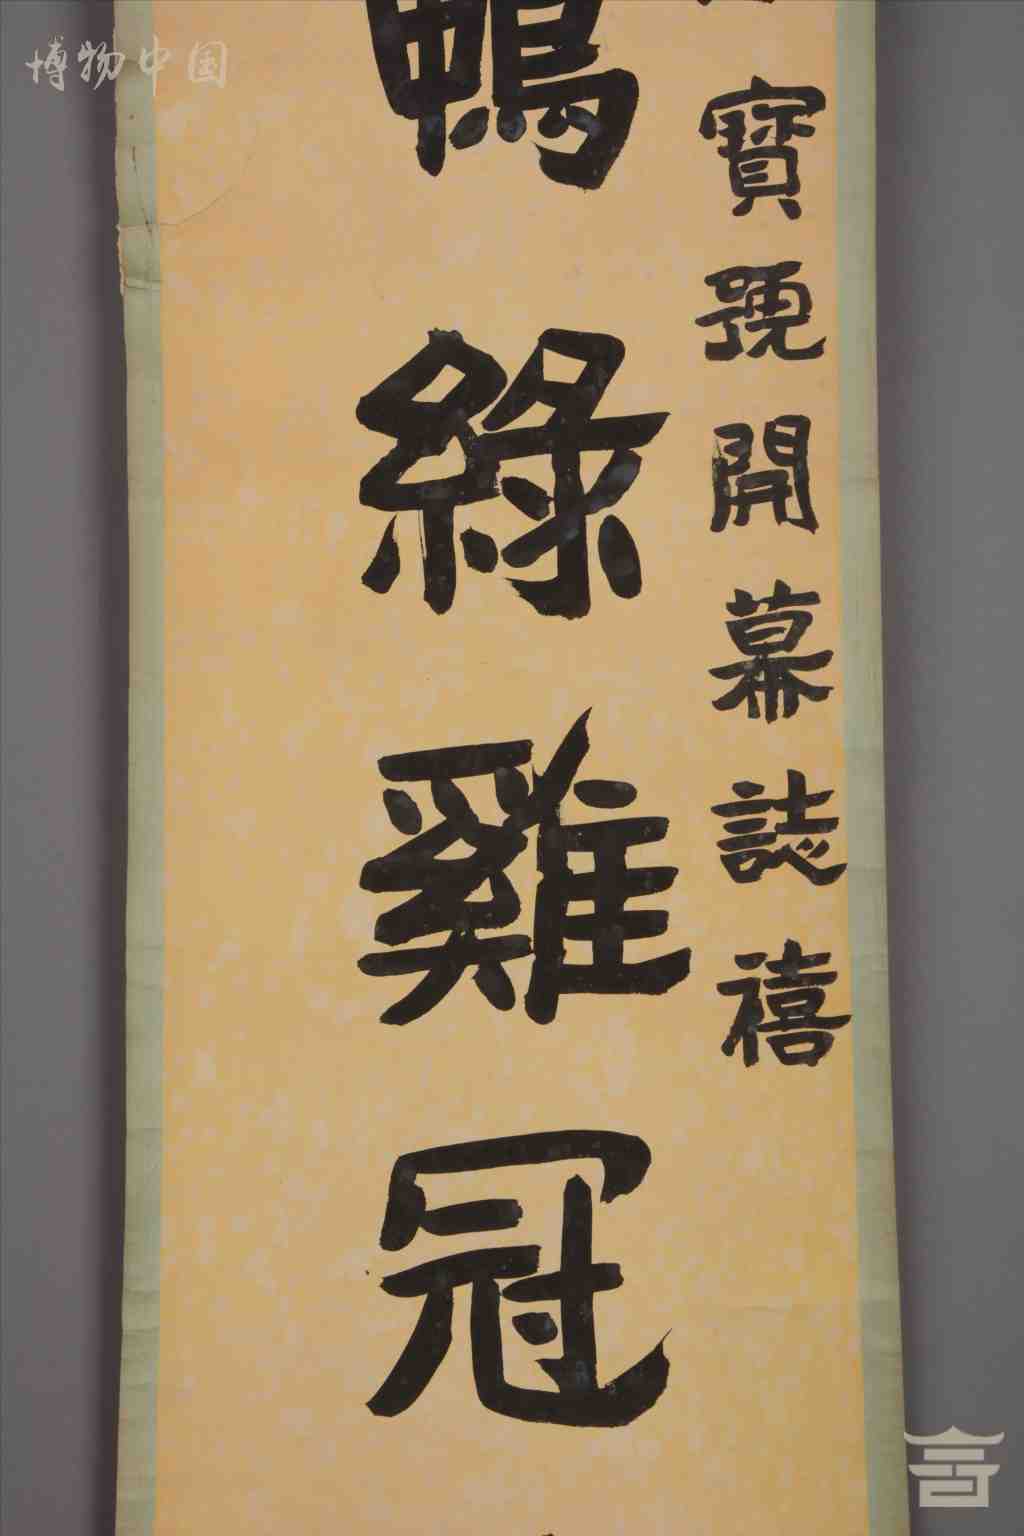 寶號開幕誌禧
鴨綠雞冠
博物中国